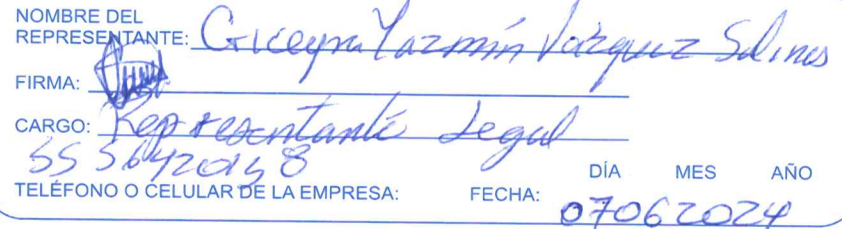 NOMBRE DEL
REPRESENTANTE: Griceyra Yazmín Vázquez Salinas
FIRMA:
CARGO: Representante Legal
DÍA MES AÑO
TELÉFONO O CELULAR DE LA EMPRESA: FECHA: 07062024